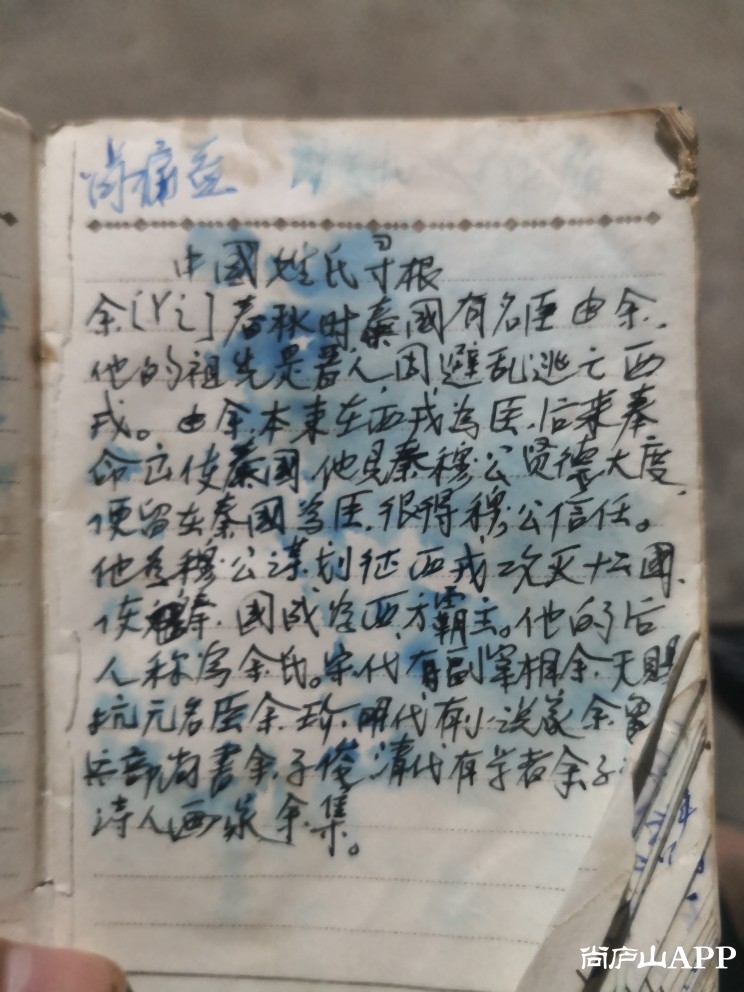 中國姓氏寻根
余[Yí]春秋时秦國有名臣由余.
他的祖先是晋人因避乱逃亡西
戎。由余本来在西戎為臣,后来奉
命出使秦國.他見秦穆公贤德大度,
便留在秦國為臣.很得穆公信任。
他為穆公謀划征西戎攻灭十二國.
使秦.国成為西方霸主。他的后
人称為余氏。宋代有副宰相余天賜
抗元名臣余玠.明代有小说家余
兵部尚書余子俊清代有学者余
诗人画家余集。
尚庐山APP